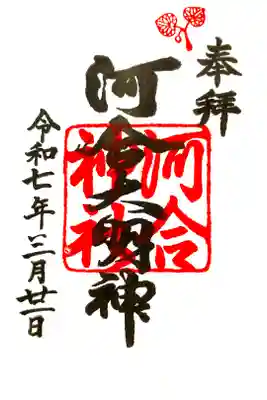 奉拝
河合大明神
河合
神社
令和七年三月廿一日